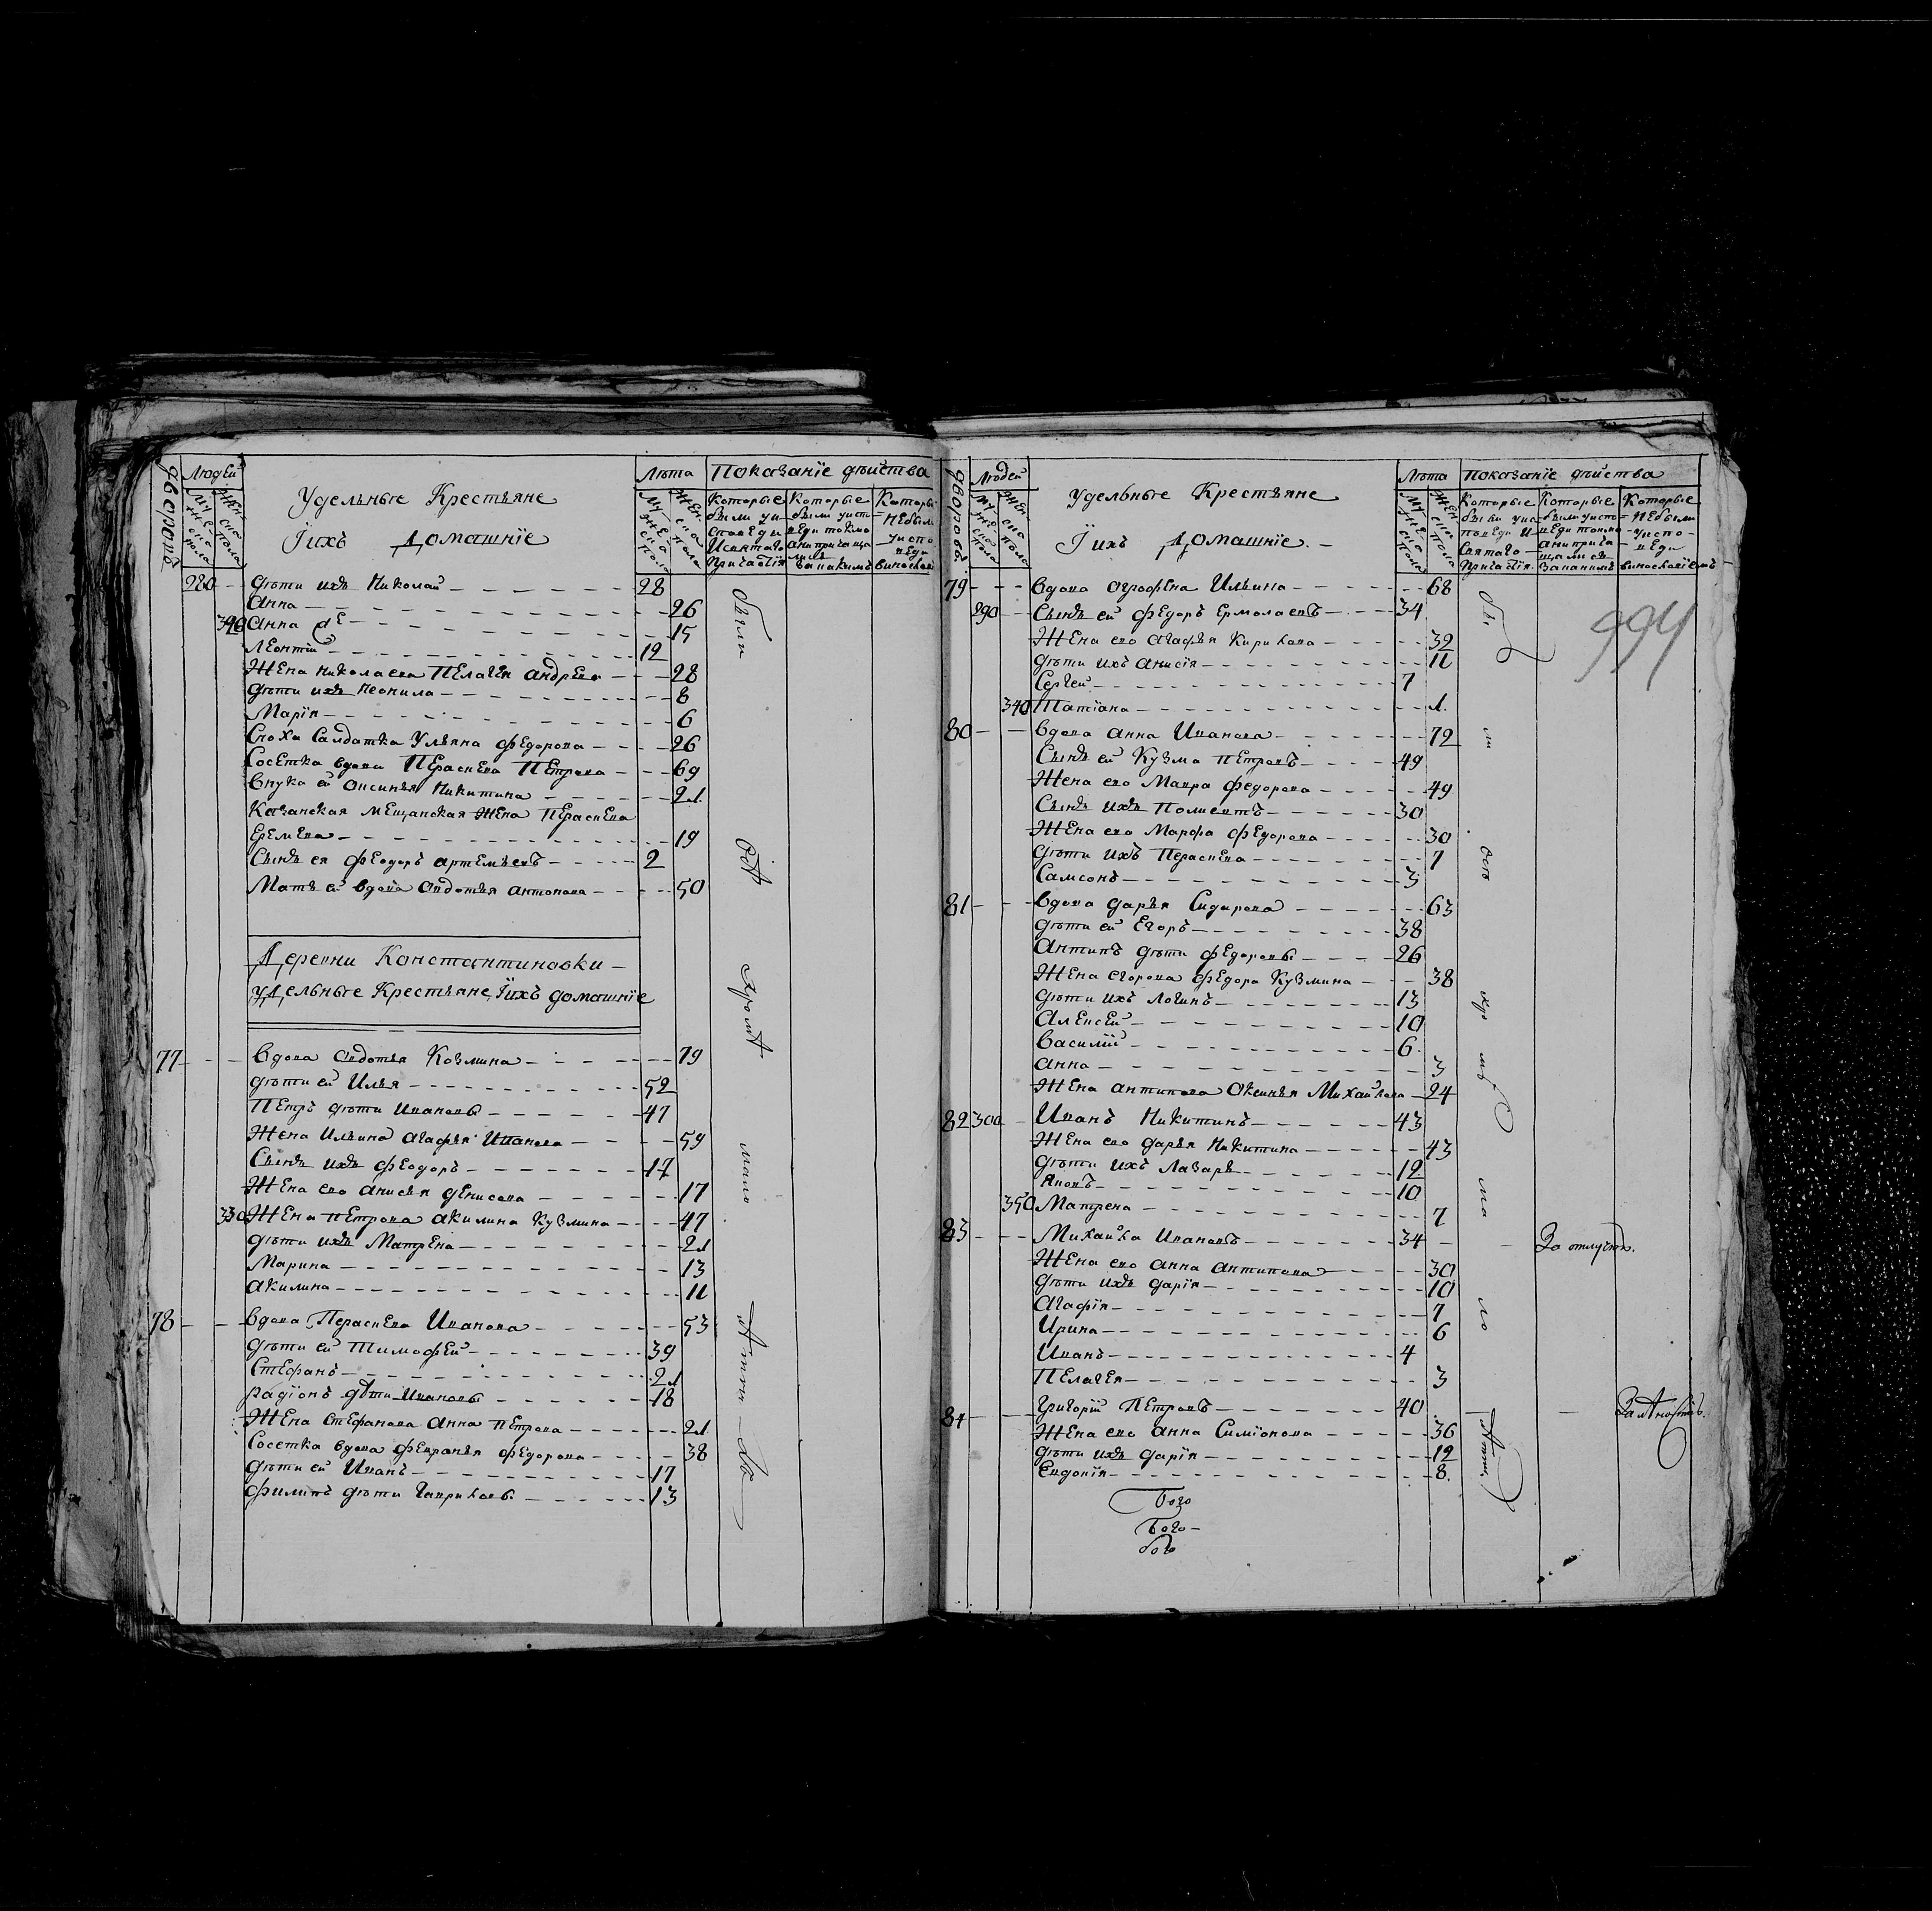 дворовъ
Людей
мужеска пола
женска пола
Удельные Крестьяне
Iихъ Домашнїе
Лѣта
мужеска пола
женска пола
Показанїе дѣйства
Которые были уисповеди Исвятаго причастїя
Которые были уисповеди токмо анипричащались
Которые небыли уисповеди
280 - дѣти ихъ Николай - 28
Анна - 26
Анна же - 15
Леонтий - 12
Жена николаева Пелагея андреева - 28
дѣти ихъ неонила - 8
Марїя - 6
Сноха Салдатка Ульяна федорова - 26
Сосетка вдова Пераскева Петрова - 69
Внука ей оксинья Никитина - 21
Казанская мещанская жена Пераскева
Еремеева - 19
Сынъ ея феодоръ артемьевъ - 2
Мать ей вдова авдотья антонова - 50
Деревни Константиновки -
удельные Крестьяне, Iихъ домашнїе
77 - вдова авдотья Козмина - 79
дѣти ей Илья - 52
Петръ дѣти Ивановы - 47
Жена Ильина агафья Иванова - 59
Сынъ ихъ феодоръ - 17
Жена ево анисья денисова - 17
330 Жена петрова акилина Кузмина - 47
дѣти ихъ Матрена - 21
Марина - 13
акилина - 11
78 - вдова Пераскева Иванова - 53
дѣти ей Тимофей - 39
Стефанъ - 21
радїонъ дѣти Ивановы - 18
Жена стефанова Анна петрова - 21
Сосетка вдова февранья федорова - 38
дѣти ей Иванъ - 17
филипъ дѣти Гавриловы - 13
были
дворовъ
Людей
мужеска пола
женска пола
Удельные Крестьяне
Iихъ Домашнїе. -
Лѣта
мужеска пола
женска пола
Показанїе дѣйства
Которые были уисповеди И Святаго причастїя.
Которые были уисповеди токмо анипричащались
Которые небыли уисповеди
994
79 - вдова аграфена Ильина - 68
290 - Сынъ ей федоръ Ермолаевъ - 34
Жена ево агафья Кирилова - 32
дѣти ихъ анисїя - 11
Сергей - 7
340 Татїана - 1.
80 - вдова анна Иванова - 72
Сынъ ей Кузма Петровъ - 49
Жена ево Мавра федорова - 49
Сынъ ихъ Полиектъ - 30
Жена ево Марфа федорова - 30
дѣти ихъ Пераскева - 7
Самсонъ - 3
81 - вдова дарья Сидарова - 63
дѣти ей Егоръ - 38
антипъ дѣти федоровы - 26
Жена егорова федора Кузмина - 38
дѣти ихъ Логинъ - 13
Алексей - 10
Василий - 6.
анна - 3
Жена антипова Оксинья Михайлова - 24
82 300 - Иванъ Никитинъ - 43
Жена ево дарья Никитина - 43
дѣти ихъ Лазарь - 12
яковъ - 10
350 Матрена - 7
83 - Михайла Ивановъ - 34 - За отлучкою.
Жена ево анна антипова - 30
дѣти ихъ дарїя - 10
Агафїя - 7
Ирина - 6
Иванъ - 4
Пелагея - 3
84 - григорий Петровъ - 40
Жена ево анна Симїонова - 36
дѣти ихъ дарїя - 12
Евдокїя - 8.